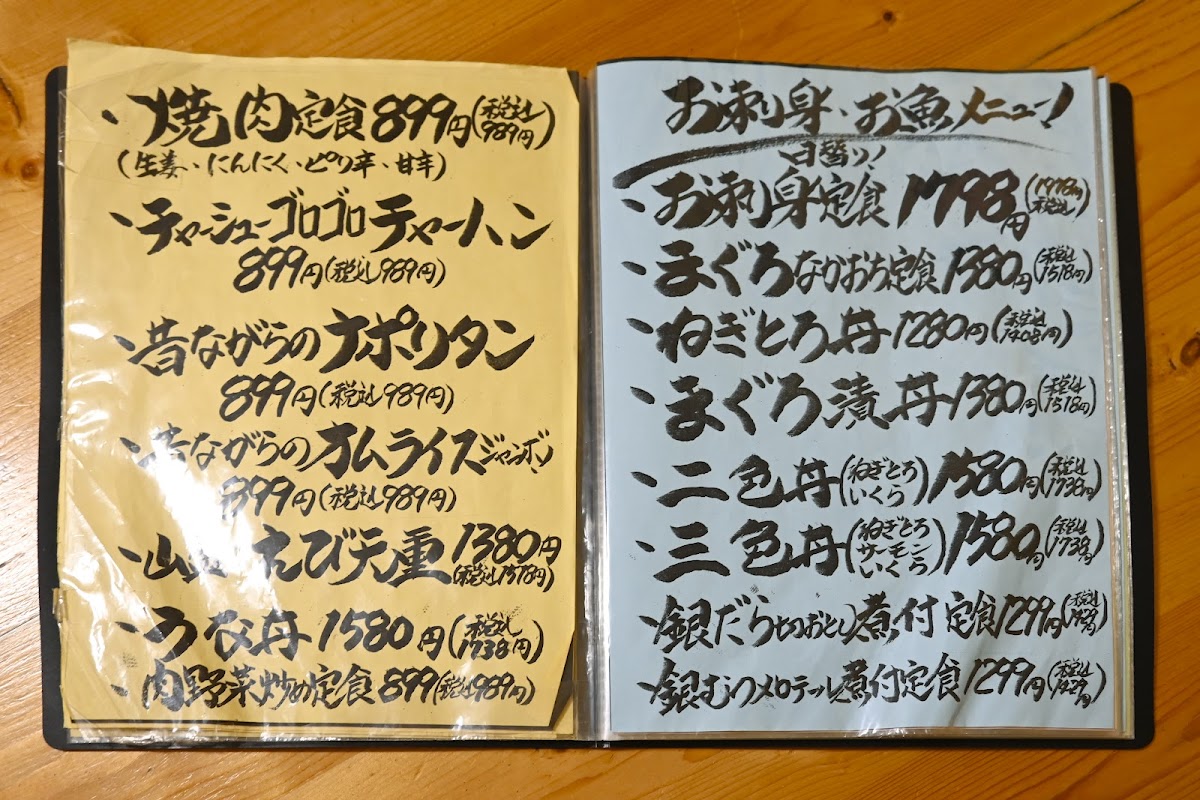 ・焼肉定食899円(税込989円)
(生姜・にんにく・ピリ辛・甘辛)
・チャーシューゴロゴロチャーハン
899円(税込989円)
・昔ながらのナポリタン
899円(税込989円)
・昔ながらのオムライスジャンボン
899円(税込989円)
・山盛えび天重1380円
(税込1518円)
・うな丼1580円(税込1738円)
・肉野菜炒め定食899(税込989円)
お刺身・お魚メニュー!
日替り!
・お刺身定食1798円(1978円税込)
・まぐろなかおち定食1380円(税込1518円)
・ねぎとろ丼1280円(税込1408円)
・まぐろ漬丼1380円(税込1518円)
・二色丼(ねぎとろ いくら)1580円(税込1738円)
・三色丼(ねぎとろ サーモン いくら)1580円(税込1738円)
・銀だら切りおとし煮付定食1299円(税込1429円)
・銀むつメロテール煮付定食1299円(税込1429円)